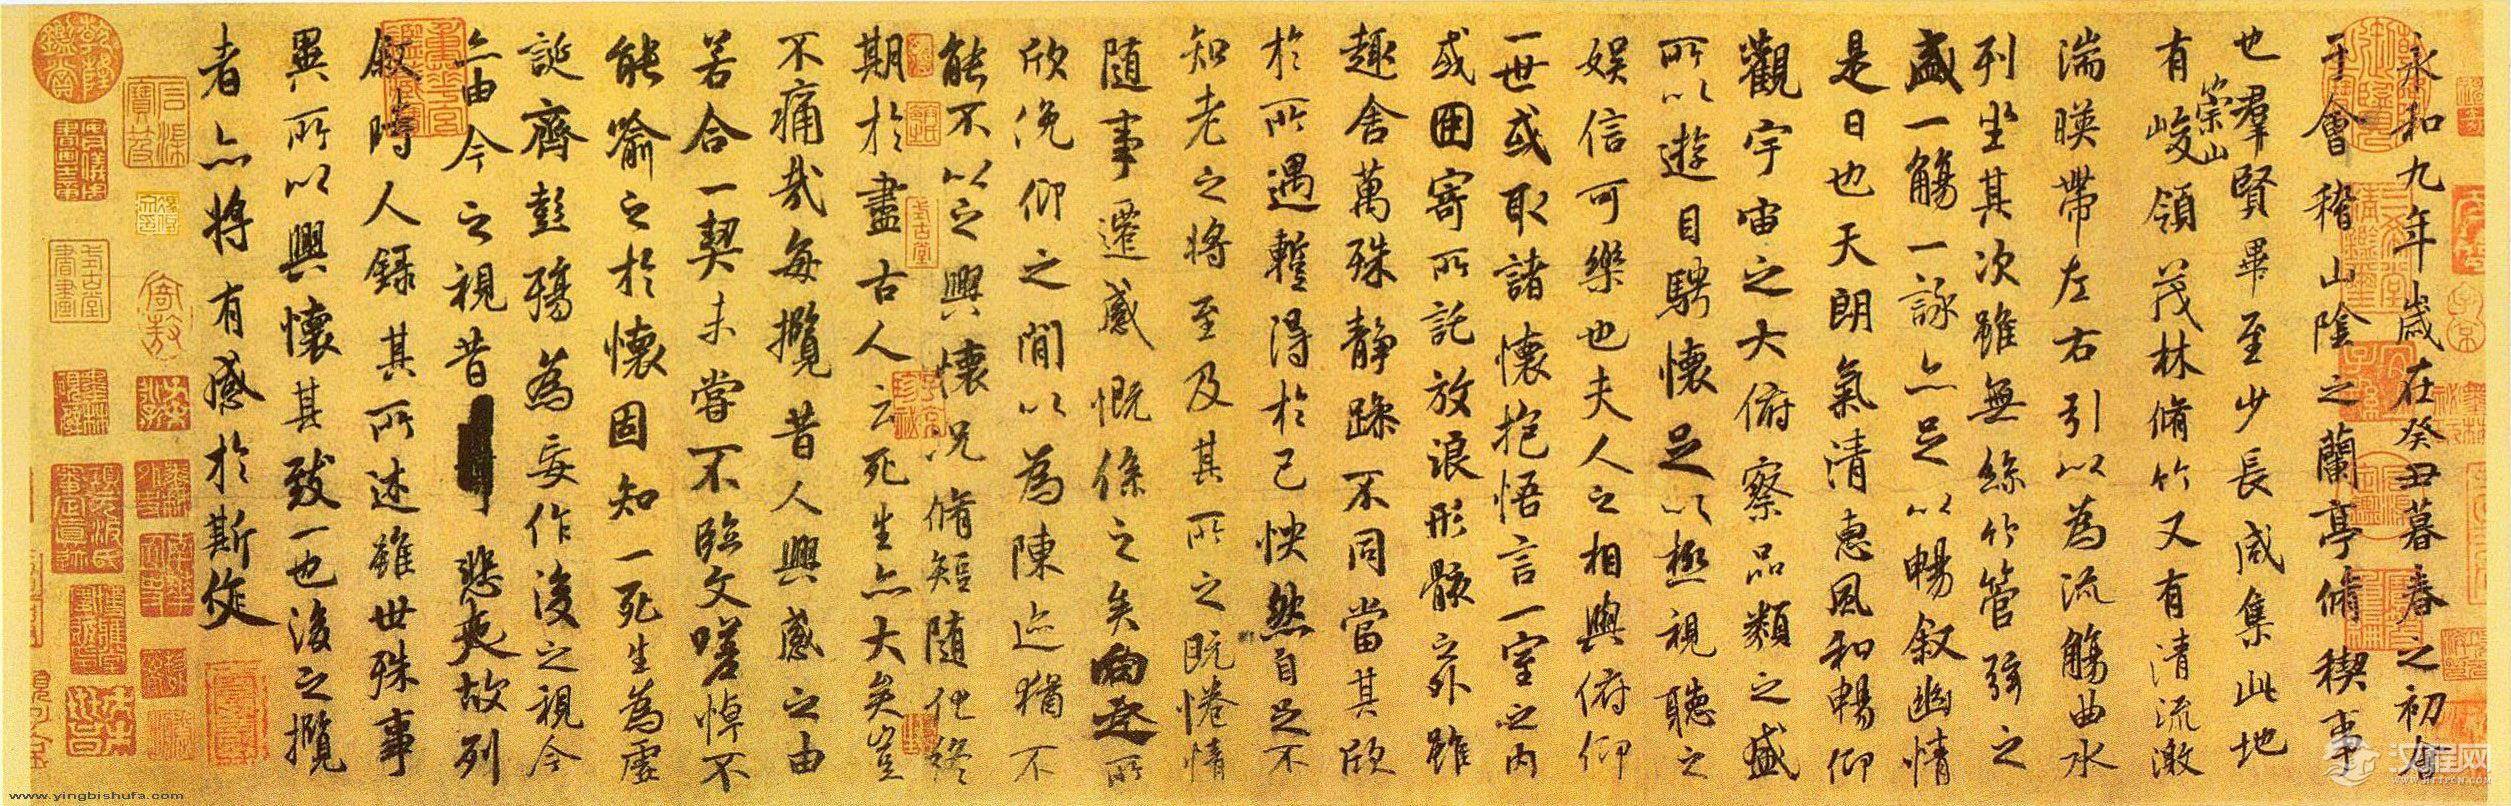 永和九年歲在癸丑暮春之初會
于會稽山陰之蘭亭脩稧事
也羣賢畢至少長咸集此地
有崇山峻領茂林脩竹又有清流激
湍暎帶左右引以為流觴曲水
列坐其次雖無絲竹管弦之
盛一觴一詠亦足以暢叙幽情
是日也天朗氣清惠風和暢仰
觀宇宙之大俯察品類之盛
所以遊目騁懷足以極視聽之
娛信可樂也夫人之相與俯仰
一世或取諸懷抱悟言一室之內
或因寄所託放浪形骸之外雖
趣舍萬殊靜躁不同當其欣
於所遇蹔得於己怏然自足不
知老之將至及其所之既惓情
隨事遷感慨係之矣向之所
欣俛仰之閒以為陳迹猶不
能不以之興懷況脩短隨化終
期於盡古人云死生亦大矣豈
不痛哉每攬昔人興感之由
若合一契未嘗不臨文嗟悼不
能喻之於懷固知一死生為虛
誕齊彭殤為妄作後之視今
亦由今之視昔悲夫故列
叙時人錄其所述雖世殊事
異所以興懷其致一也後之攬
者亦將有感於斯文
www.yingbishufa.com
汉程网
WWW.HTTPCN.COM